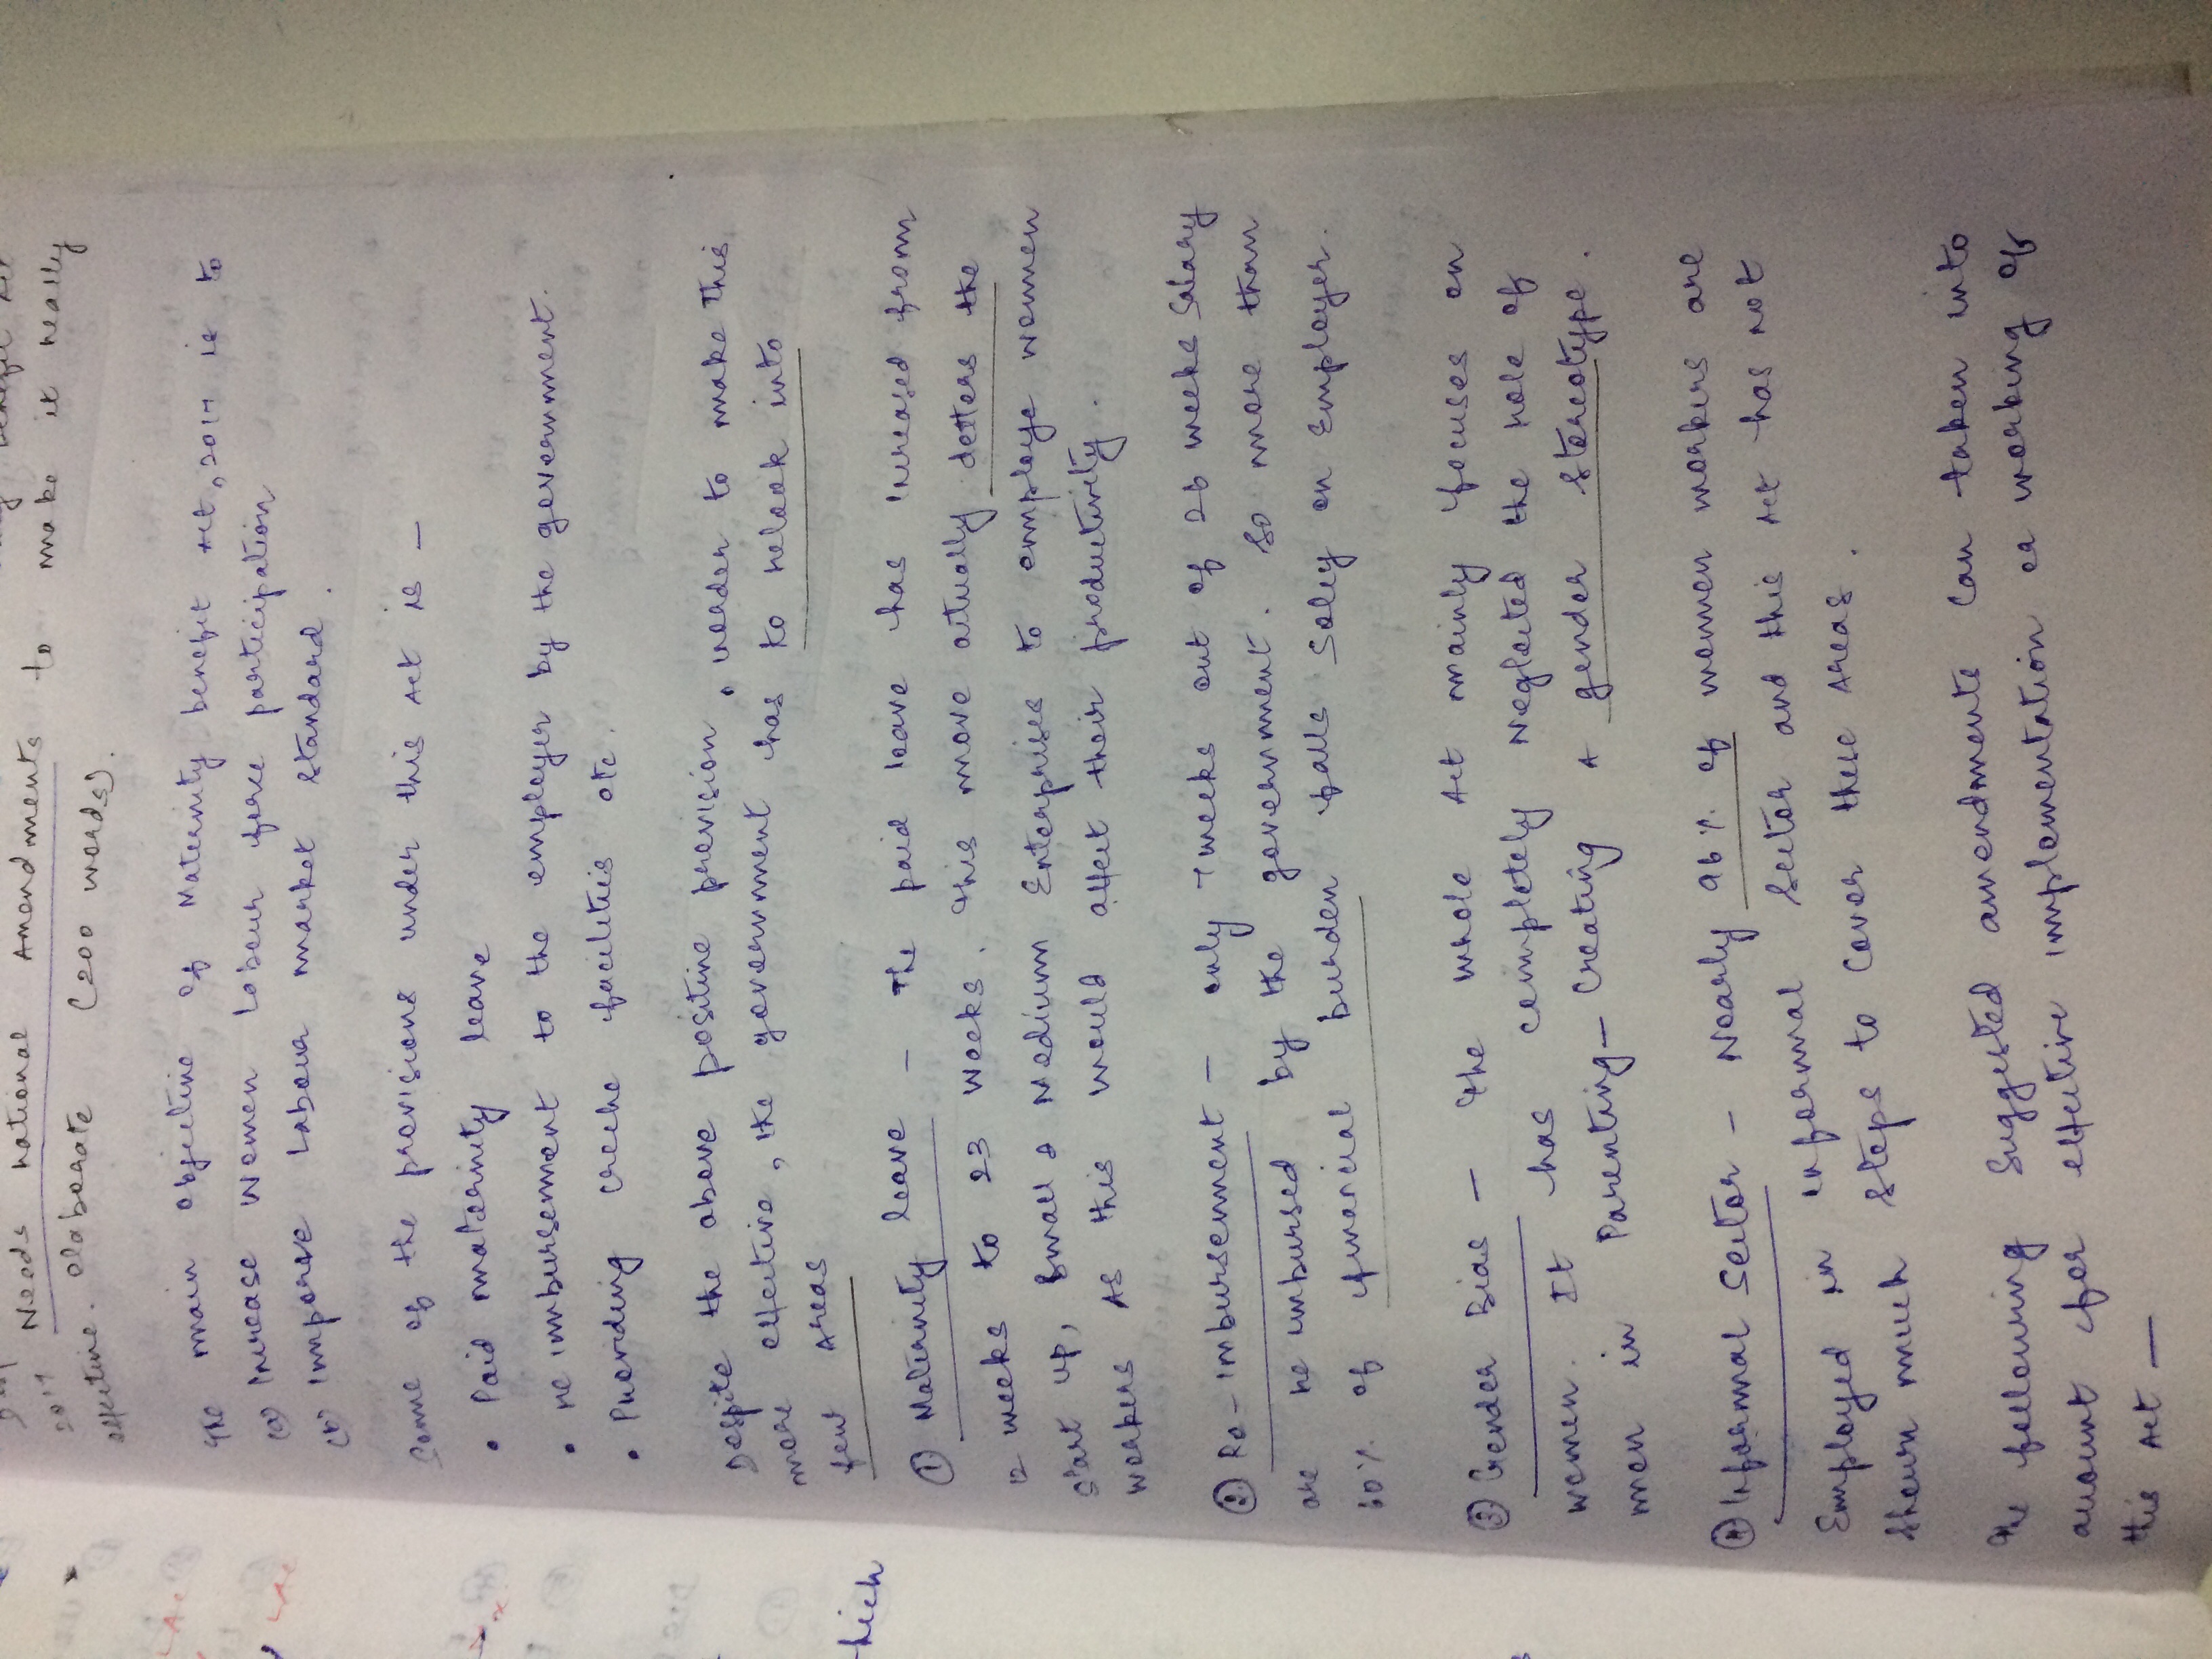 2017 Needs national Amendments to make it really
effective. elaborate (200 words).
The main objective of Maternity benefit Act, 2017 is to
(a) Increase Women Labour force participation
(b) Imporve Labour market standard.
Some of the provisions under this Act is -
• Paid materinity leave
• re imbursement to the employer by the government.
• Providing creche facilities etc.
Despite the above positive provision, inorder to make This
more effective, the government has to relook into
few Areas
① Materinity leave - The paid leave has increased from
12 weeks to 23 weeks. This move actually detters the
start up, Small & Medium Enterprises to employe women
workers As this would affect their productivity.
② Re-imbursement - only 7 weeks out of 26 weeks Salary
are re imbursed by the government. So more than
60% of financial burden falls Soley on Employer.
③ Gender Bias - The whole Act mainly focuses on
women. It has completely Neglected the role of
men in Parenting - Creating A gender stereotype.
④ Informal Sector - Nearly 96% of women workers are
Employed in informal Sector and this Act has not
shown much steps to Cover these Areas.
The following Suggested amendments Can taken into
account for effective implementation ea working of
this Act -
hich